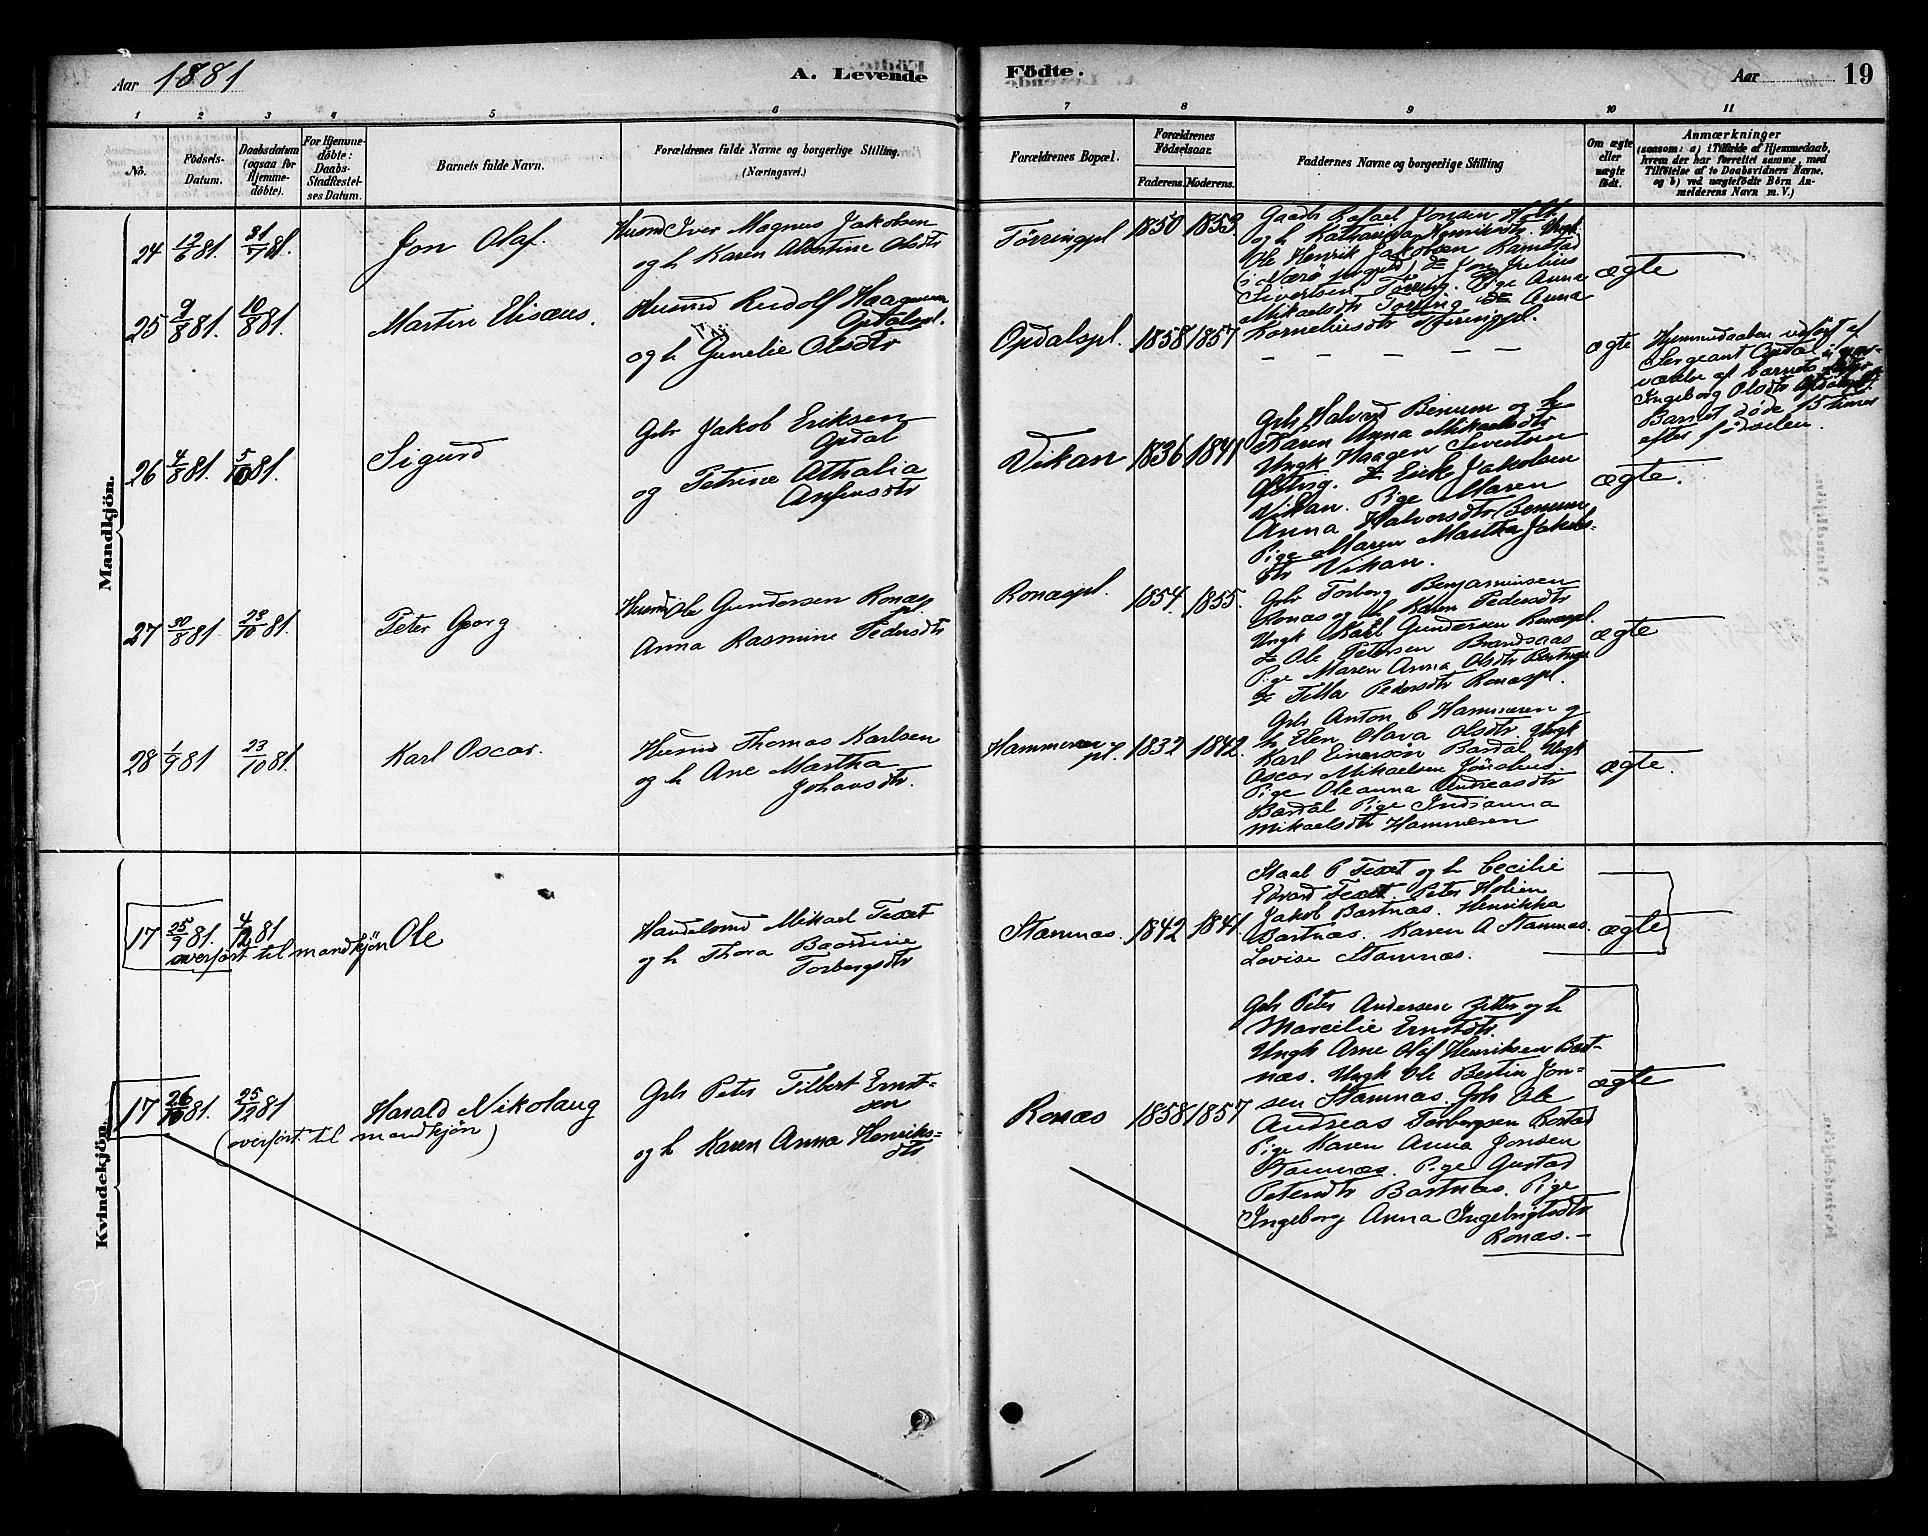 Aar 1881
A. Levende
Födte.
Aar
19
1 2 3 4 5 6 7 8 9 10 11
No.
Födsels-
Datum.
Daabsdatum
(ogsaa for
Hjemme-
döbte).
For Hjemme-
döbte:
Daabs-
Stadfæstel-
ses Datum.
Barnets fulde Navn.
Forældrenes fulde Navne og borgerlige Stilling.
(Næringsvei.)
Forældrenes Bopæl.
Forældrenes
Födselsaar.
Faderens. Moderens.
Faddernes Navne og borgerlige Stilling
Om ægte
eller
uægte
födt.
Anmærkninger
(saasom: a) i Tilfælde af Hjemmedaab,
hvem der har forrettet samme, med
Tilföielse af to Daabsvidners Navne,
og b) ved uægtefödte Börn An-
melderens Navn m. V.)
Mandkjön.
24 12/6 81. 31/7 81. Jon Olaf.
Husmd Iver Magnus Jakobsen
og h Karen Albertine Olsdtr
Törringpl 1850 1853.
Gaardb Rafael Jonsen Holt
og h Katharina Henriksdtr. Ungk
Ole Henrik Jakobsen Ramstad
(i Nærö prgjeld)
Sivertsen Törring. Pige Anna
Mikaelsdtr Törring do Anna
Korneliusdtr Törringpl.
ægte
25 9/8 81. 10/8 81. Martin Elisæus.
Husmd Rudolf Haagensen
Opdalspl.
og h Gunelie Olsdtr
Opdalspl. 1858 1857
— — — — —
ægte
Hjemmedaaben udfört af
Sergeant Opdal i nær-
værelse af barnets
Ingeborg Olsdtr Opdalspl.
Barnet döde 15 timer
efter födselen.
26 4/8 81. 5/10 81. Sigurd
Gbr Jakob Eriksen
Opdal
og Petrine Athalia
Anfinsdtr
Vikan 1836 1841
Gbr Halvard Benum og h
Karen Anna Mikaelsdtr
Ungk Haagen Sivertsen
do Erik Jakobsen
Vikan. Pige Maren
Anna Halvorsdtr Benum
Pige Maren Martha Jakobs-
dtr Vikan.
ægte.
27 30/8 81. 23/10 81. Peter Georg
Husmd Ole Gundersen Ronæs
pl.
Anna Rasmine Pedersdtr
Ronæspl. 1854. 1855.
Gbr Torberg Benjaminsen
Ronæs og h Karen Pedersdtr
Ungk Karl Gundersen Ronæspl.
do Ole Petersen Brandsaas
Pige Maren Anna Olsdtr Bartnæs
do Tilla Pedersdtr Ronæspl.
ægte
28 1/9 81 23/10 81. Karl Oscar.
Husmd Thomas Karlsen
og h Ane Martha
Johansdtr.
Hammeren
pl. 1832 1842.
Gbr Anton C Hammeren og
h Elen Olava Olsdtr. Ungk
Karl Einersön Bardal Ungk
Oscar Mikaelsen
Pige Oleanna Andreasdtr
Bardal Pige Indianna
Mikaelsdtr Hammeren
ægte.
Kvindekjön.
17 25/9 81. 4/12 81 Ole
overfört til mandkjön
Handelsmd Mikael Texet
og h Thora Baardine
Torbergsdtr
Stamnæs. 1842 1841
P Texet og h Cecilie
Edvard Texet Peter Holien
Jakob Bartnæs. Henrikka
Bartnæs. Karen A Stamnæs.
Lovise Stamnæs.
ægte
17 26/10 81. 25/12 81 Harald Nikolaug
(overfört til mandkjön)
Gbr Peter Tilbert Ernst-
sen
og h Karen Anna Henriks-
dtr
Ronæs 1858 1857
Gbr Peter Andersen Zetter og h
Marcelie Ernstdtr.
Ungk Arne Olaf Henriksen Bart-
næs. Ungk Ole Bertin Jon-
sen Stamnæs. Gbr Ole
Andreas Torbergsen Bostad
Pige Karen Anna Jonsen
Stamnæs. Pige Gustad
Petersdtr Bartnæs. Pige
Ingeborg Anna Ingebrigtsdtr
Ronæs. —
ægte